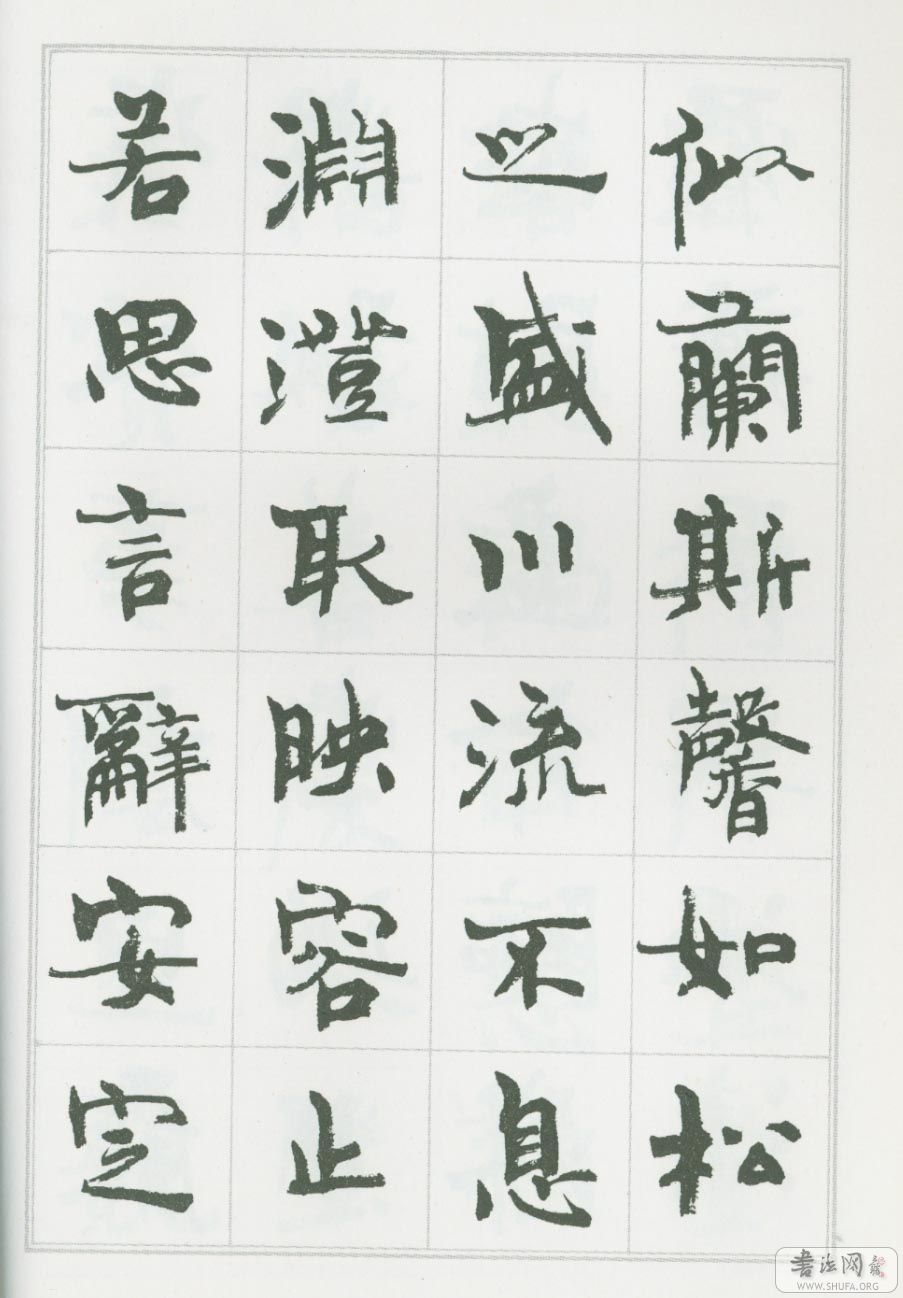 似蘭斯馨如松
之盛川流不息
淵澄取映容止
若思言辭安定
書法网
WWW.SHUFA.ORG